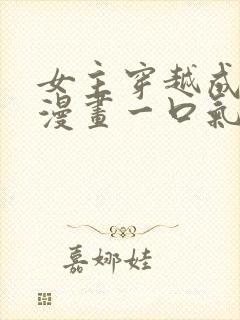 女主穿越成
漫畫一口氣
嘉娜娃